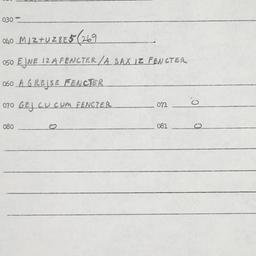 030 -
040 MIZTUZ8E5(269
050 EJNE IZ A FENCTER/A SAX IZ FENCTER
060 A GREJSE FENCTER
070 GEJ CU CUM FENCTER 072 0
080 0 081 0